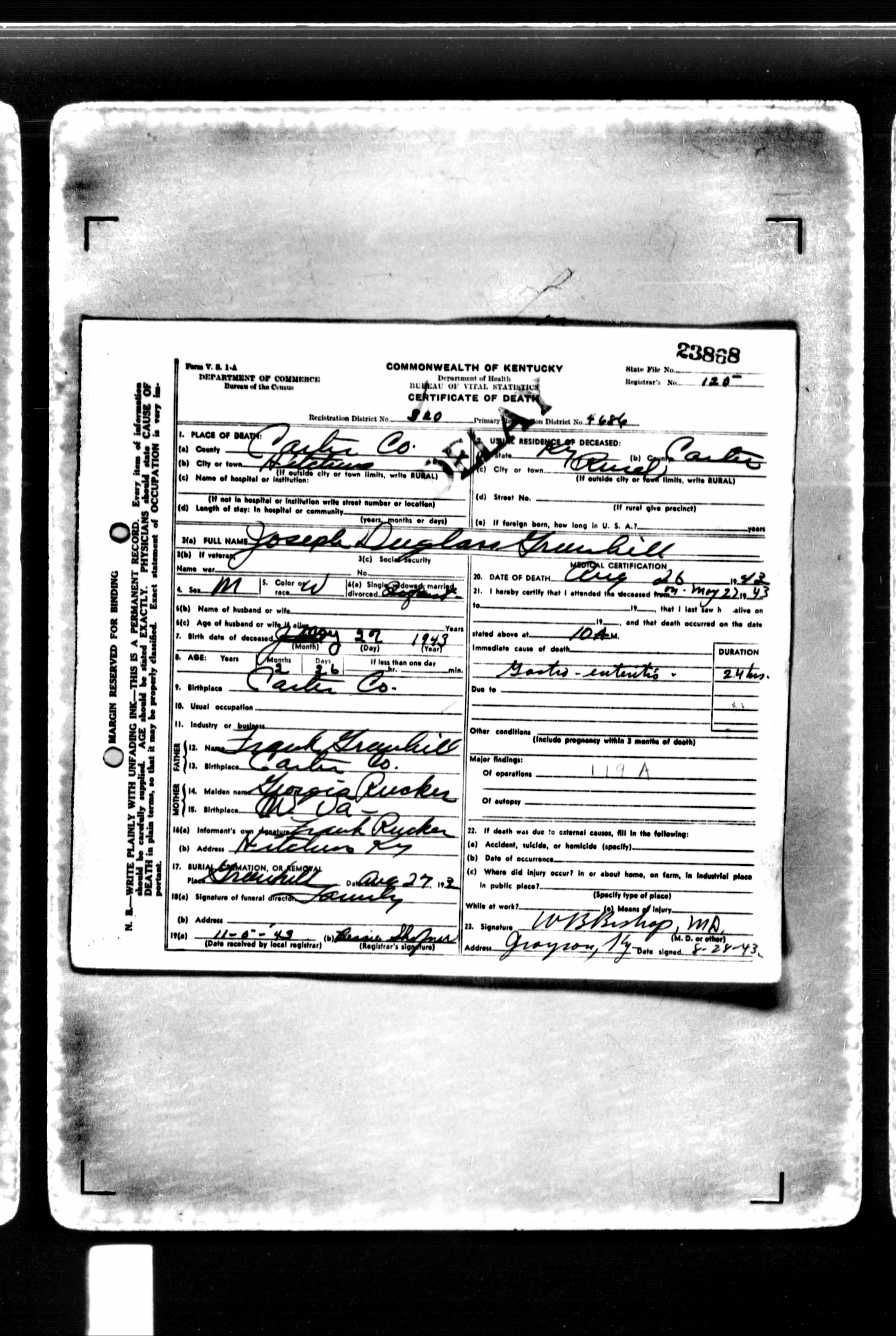 23868
Form V. S. 1-A
DEPARTMENT OF COMMERCE
Bureau of the Census
COMMONWEALTH OF KENTUCKY
Department of Health
BUREAU OF VITAL STATISTICS
CERTIFICATE OF DEATH
State File No.
Registrar's No. 120
Registration District No. 320 Primary Registration District No. 4686
DELAY
1. PLACE OF DEATH:
(a) County Carter Co.
(b) City or town Hitchins
(If outside city or town limits, write RURAL)
(c) Name of hospital or institution:
(If not in hospital or institution write street number or location)
(d) Length of stay: In hospital or community
(years, months or days)
USUAL RESIDENCE OF DECEASED:
State Ky (b) County Carter
(c) City or town Rural
(If outside city or town limits, write RURAL)
(d) Street No.
(If rural give precinct)
(e) If foreign born, how long in U. S. A.? years
3(a) FULL NAME Joseph Duglass Greenhill
3(b) If veteran,
Name war
3(c) Social Security
No.
4. Sex M 5. Color or race W 6(a) Single, widowed, married, divorced
6(b) Name of husband or wife
6(c) Age of husband or wife if alive Years
7. Birth date of deceased May 27 1943
(Month) (Day) (Year)
8. AGE: Years Months Days If less than one day
2 26 hr. min.
9. Birthplace Carter Co.
10. Usual occupation
11. Industry or business
FATHER
12. Name Frank Greenhill
13. Birthplace Carter Co.
MOTHER
14. Maiden name Georgia Rucker
15. Birthplace W. Va
16(a) Informant's own signature Frank Rucker
(b) Address Hitchins Ky
17. BURIAL, CREMATION, OR REMOVAL
Place Greenhill Date Aug 27, 193
18(a) Signature of funeral director Family
(b) Address
19(a) 11-5-43 (b) Bessie
(Date received by local registrar) (Registrar's signature)
MEDICAL CERTIFICATION
20. DATE OF DEATH Aug 26 1943
21. I hereby certify that I attended the deceased from on May 27, 1943
to 19 , that I last saw h alive on
19 , and that death occurred on the date
stated above at 10 A M.
Immediate cause of death DURATION
Gastro-enteritis. 24 hrs.
Due to
Other conditions
(Include pregnancy within 3 months of death)
Major findings:
Of operations 119 A
Of autopsy
22. If death was due to external causes, fill in the following:
(a) Accident, suicide, or homicide (specify)
(b) Date of occurrence
(c) Where did injury occur? in or about home, on farm, in industrial place
in public place?
(Specify type of place)
While at work? (e) Means of Injury
23. Signature W B Bishop, M.D.
(M. D. or other)
Address Grayson, Ky Date signed 8-28-43.
MARGIN RESERVED FOR BINDING
N. B.—WRITE PLAINLY WITH UNFADING INK—THIS IS A PERMANENT RECORD. Every item of information
should be carefully supplied. AGE should be stated EXACTLY. PHYSICIANS should state CAUSE OF
DEATH in plain terms, so that it may be properly classified. Exact statement of OCCUPATION is very im-
portant.